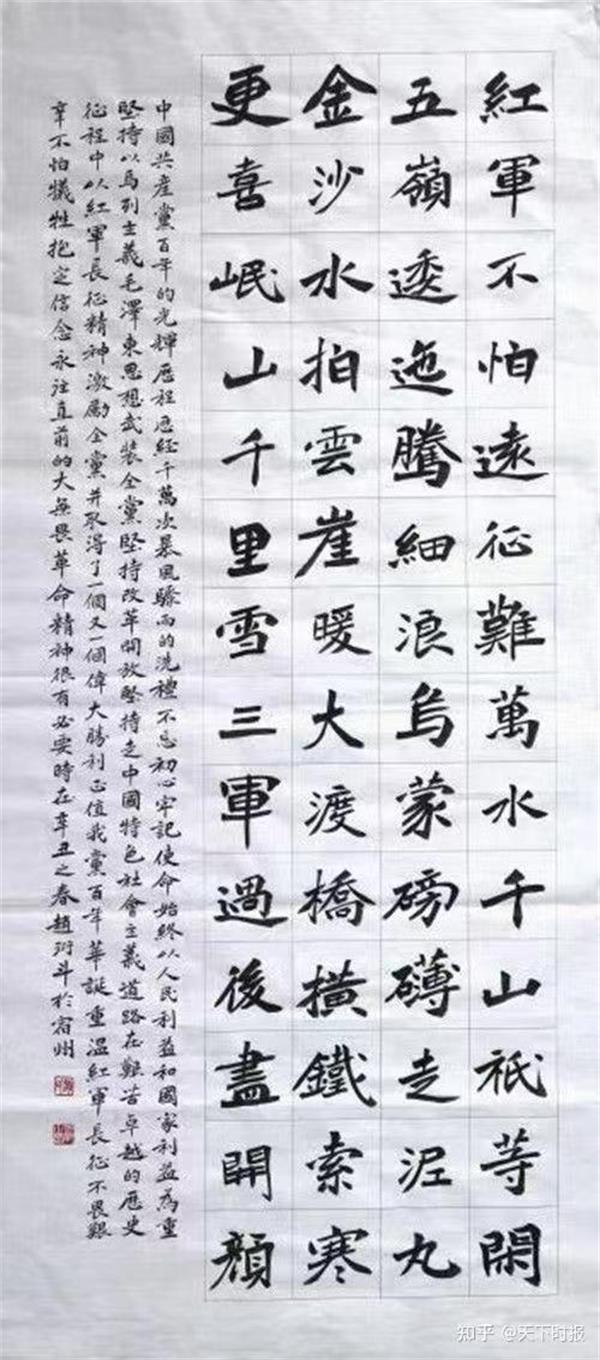 紅軍不怕遠征難萬水千山衹等閑
五嶺逶迤騰細浪烏蒙磅礴走泥丸
金沙水拍雲崖暖大渡橋橫鐵索寒
更喜岷山千里雪三軍過後盡開顏
中國共產黨百年的光輝歷程歷經千萬次暴風驟雨的洗禮不忘初心牢記使命始終以人民利益和國家利益為重
堅持以馬列主義毛澤東思想武裝全黨堅持改革開放堅持走中國特色社會主義道路在艱苦卓越的歷史
征程中以紅軍長征精神激勵全黨并取得了一個又一個偉大勝利正值我黨百年華誕重溫紅軍長征不畏艱
辛不怕犧牲抱定信念永往直前的大無畏革命精神很有必要時在辛丑之春趙珩斗於宿州
知乎 @天下时报